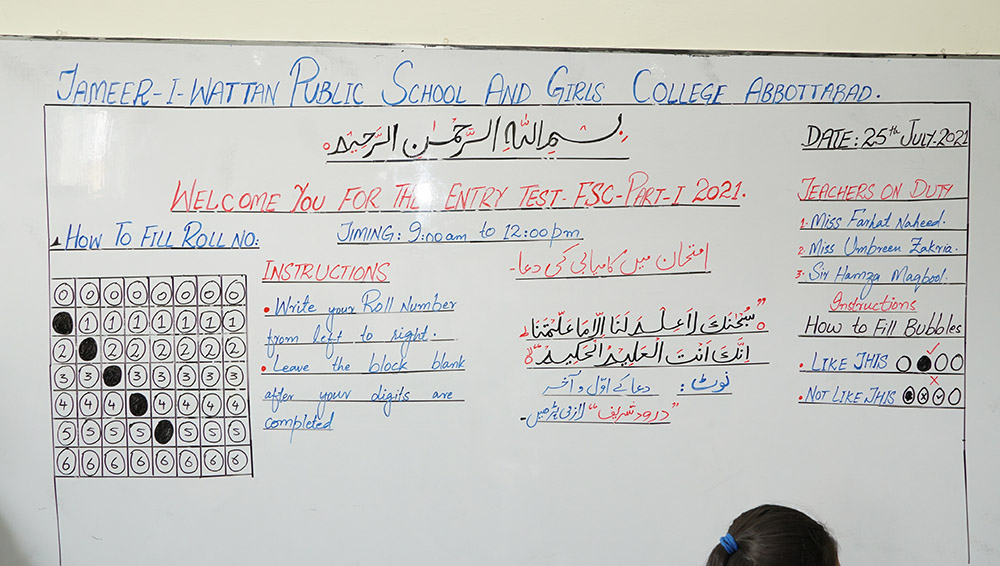 JAMEER-I-WATTAN PUBLIC SCHOOL AND GIRLS COLLEGE ABBOTTABAD.
بِسْمِ اللهِ الرَّحْمٰنِ الرَّحِيْمِ
DATE: 25th JULY.2021
WELCOME YOU FOR THE ENTRY TEST- FSC-PART-I 2021.
JIMING: 9:00am to 12:00pm
HOW TO FILL ROLL NO:
0 0 0 0 0 0 0 0
1 1 1 1 1 1 1
2 2 2 2 2 2 2
3 3 3 3 3 3 3
4 4 4 4 4 4 4
5 5 5 5 5 5 5
6 6 6 6 6 6 6 6
INSTRUCTIONS
• Write your Roll Number
from left to right.
• Leave the block blank
after your digits are
completed
امتحان میں کامیابی کی دعا۔
"سُبْحٰنَكَ لَا عِلْمَ لَنَا اِلَّا مَا عَلَّمْتَنَا
اِنَّكَ اَنْتَ الْعَلِيْمُ الْحَكِيْمُ"
نوٹ: دعا کے اوّل و آخر
"درود شریف" لازمی پڑھیں۔
TEACHERS ON DUTY
1. Miss Farhat Naheed.
2. Miss Umbreen Zakria.
3. Sir Hamza Maqbool.
Instructions
How to Fill Bubbles
• LIKE JHIS
• NOT LIKE JHIS